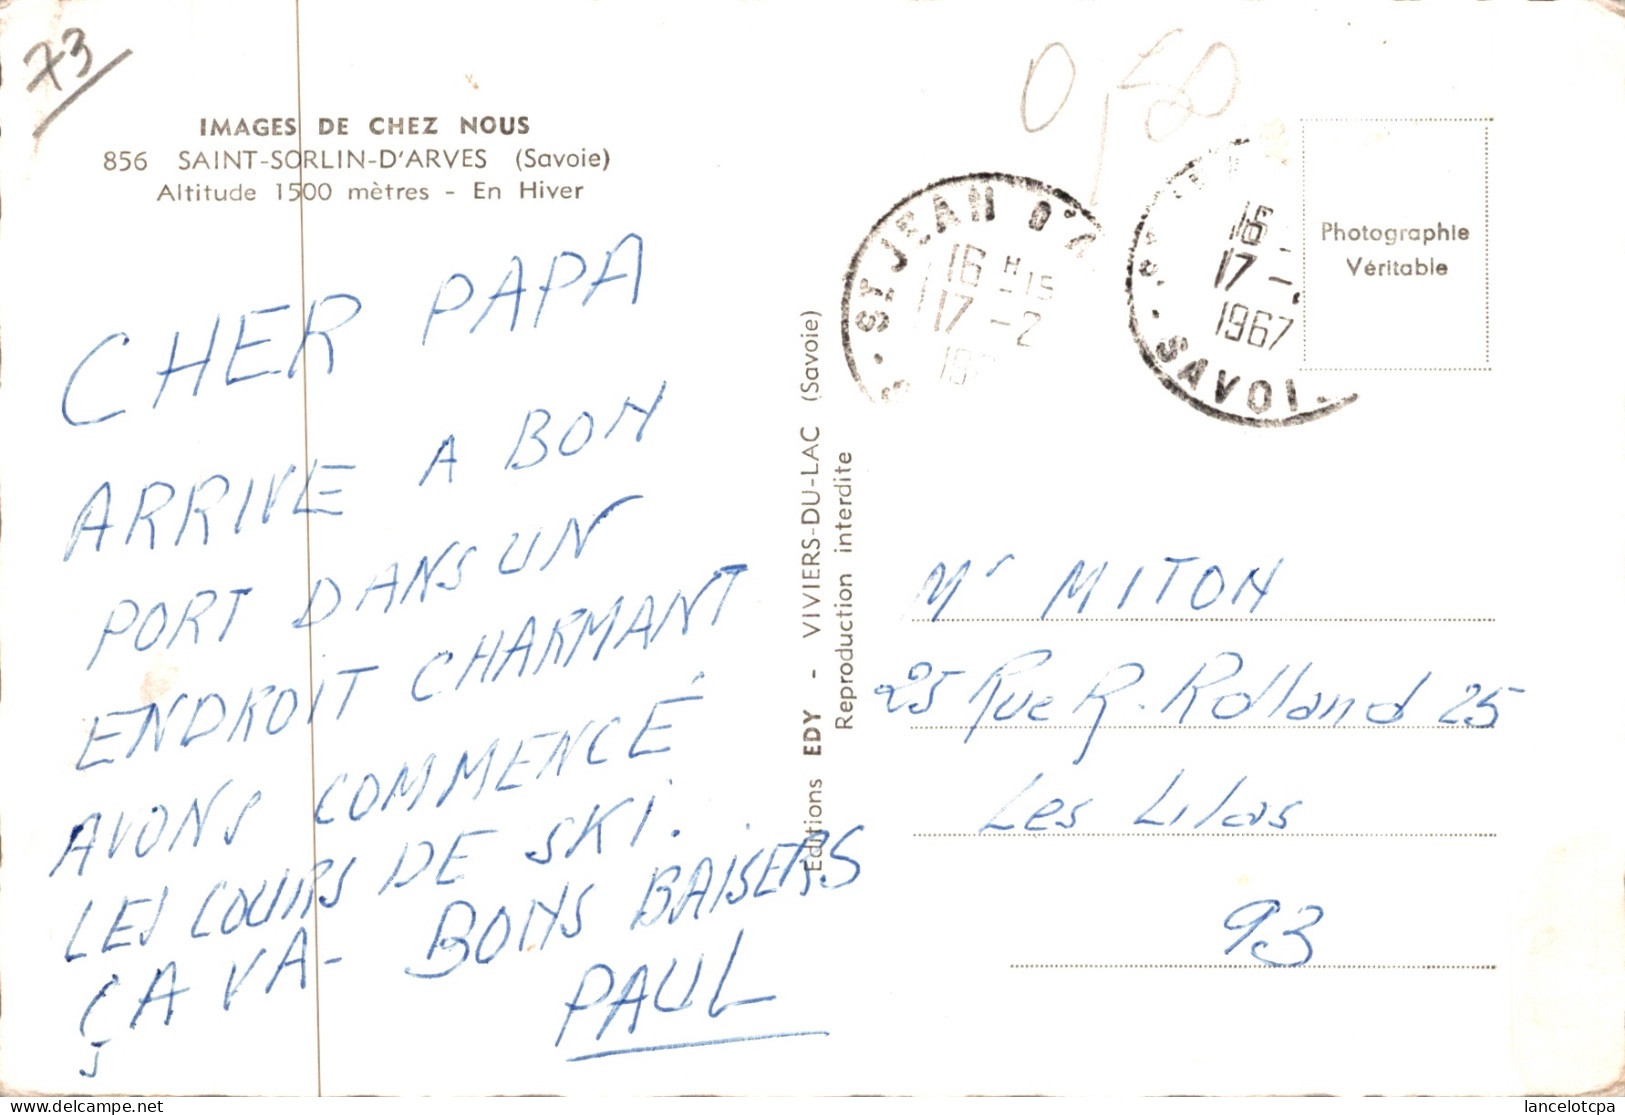 73
IMAGES DE CHEZ NOUS
856 SAINT-SORLIN-D'ARVES (Savoie)
Altitude 1500 mètres - En Hiver
CHER PAPA
ARRIVE A BON
PORT DANS UN
ENDROIT CHARMANT
AVONS COMMENCÉ
LES COURS DE SKI.
ÇA VA - BONS BAISERS
PAUL
Editions EDY - VIVIERS-DU-LAC (Savoie)
Reproduction interdite
0,50
ST JEAN D'A
16 H 15
17 - 2
16
17 -
1967
SAVOI
Photographie
Véritable
Mr MITON
25 Rue R. Rolland 25
Les Lilas
93
lancelotcpa